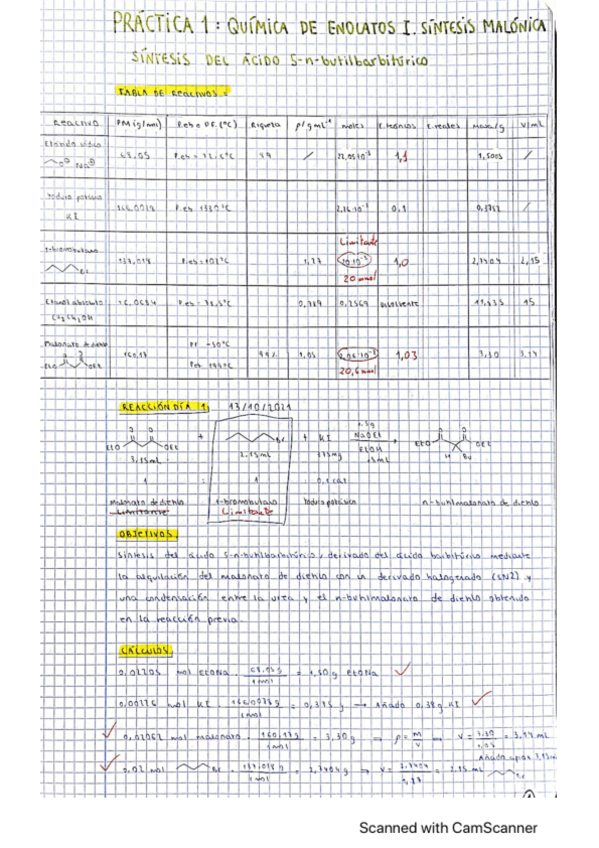 PRÁCTICA 1: QUÍMICA DE ENOLATOS I. SÍNTESIS MALÓNICA
SÍNTESIS DEL ÁCIDO 5-n-butilbarbitúrico
TABLA DE REACTIVOS:
Reactivo PM (g/mol) P.eb o P.F. (ºC) Riqueza ρ/g mL⁻¹ moles E. teóricos E. reales Masa/g V/mL
Etóxido sódico
68,05 99 / 22,05·10⁻³ 1,1 1,5005 /
Yoduro potásico
KI 166,0028 P.eb 1330ºC 0,1 /
Limitante
1-bromobutano
Br P.eb = 101ºC 1,0 2,7404 2,15
20 mmol
Etanol absoluto 46,0684 P.eb = 78,5ºC 0,789 0,2569 Disolvente 11,835 15
CH₃CH₂OH
Malonato de dietilo PF -50ºC
EtO OEt 160,17 99% 1,05 1,03 3,30
20,6 mmol
REACCIÓN DÍA 1: 13/10/2021
EtO OEt + Br + KI NaOEt EtOH 15mL EtO OEt
3,15mL 2,15mL H Bu
1 : 1 : 0,1 cat
Malonato de dietilo 1-bromobutano Yoduro potásico n-butilmalonato de dietilo
Limitante Limitante
OBJETIVOS:
Síntesis del ácido 5-n-butilbarbitúrico, derivado del ácido barbitúrico mediante
la alquilación del malonato de dietilo con un derivado halogenado (SN2) y
una condensación entre la urea y el n-butilmalonato de dietilo obtenido
en la reacción previa.
CÁLCULOS:
0,02205 mol EtONa · 68,05 g / 1 mol = 1,50 g EtONa
0,00226 mol KI · 166,0028 g / 1 mol = 0,375 g → Añado 0,38 g KI
0,02062 mol malonato · 160,17 g / 1 mol = 3,30 g ⇒ ρ = m/V ⇒ V = 3,30/1,05 = mL
0,02 mol Br · 137,018 g / 1 mol = 2,7404 g ⇒ V = 2,7404 = 2,15 mL Br
Scanned with CamScanner